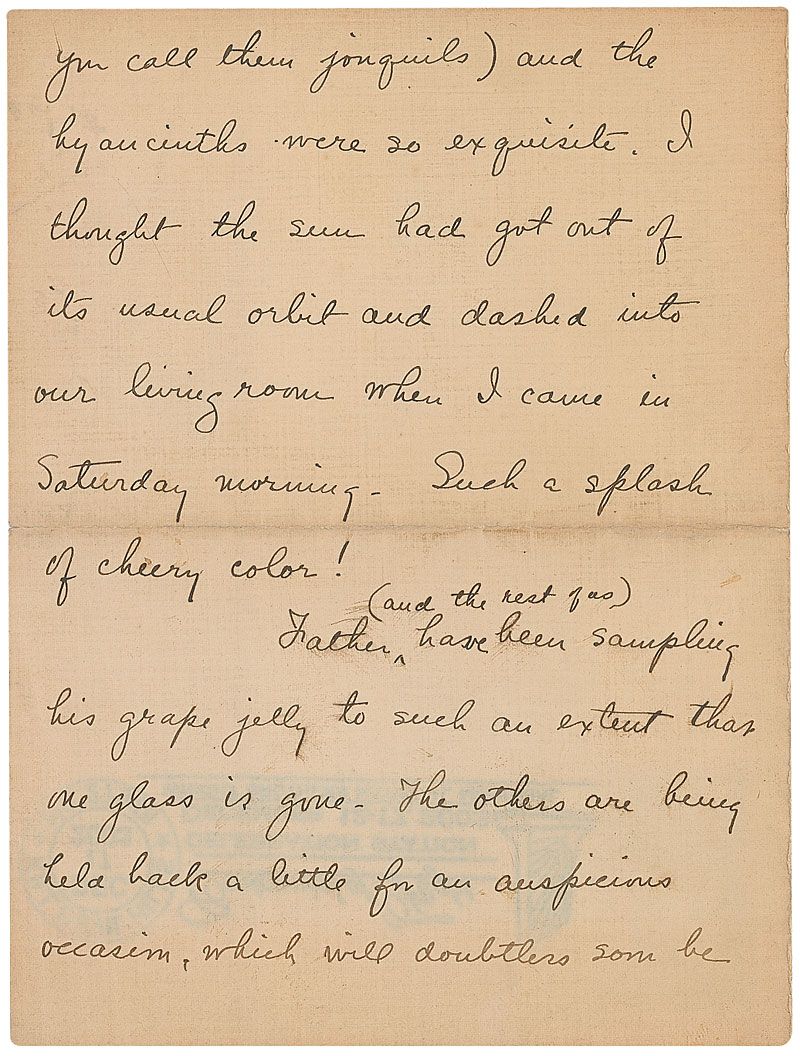 you call them jonquils) and the
hyancinths were so exquisite. I
thought the sun had got out of
its usual orbit and dashed into
our living room when I came in
Saturday morning - Such a splash
of cheery color!
(and the rest of us)
Father ^ have been sampling
his grape jelly to such an extent that
one glass is gone - The others are being
held back a little for an auspicious
occasion, which will doubtless soon be